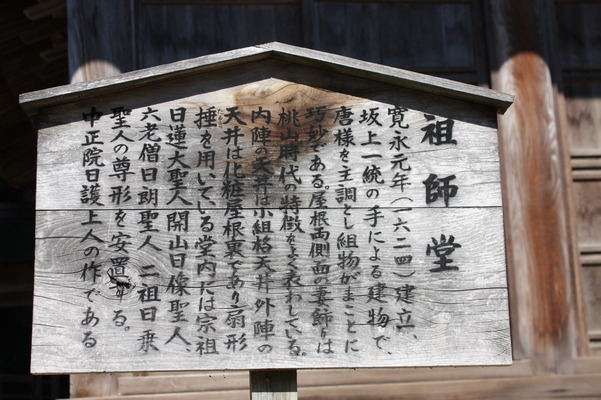 祖師堂
寛永元年(一六二四)建立、
坂上一統の手による建物で、
唐様を主調とし組物がまことに
巧妙である。屋根両側面の妻飾りは
桃山時代の特徴をよく表わしている。
内陣の天井は小組格天井外陣の
天井は化粧屋根裏であり扇形
捶を用いている堂内には宗祖
日蓮大聖人開山日像聖人、
六老僧日朗聖人 二祖日乗
聖人の尊形を安置する。
中正院日護上人の作である